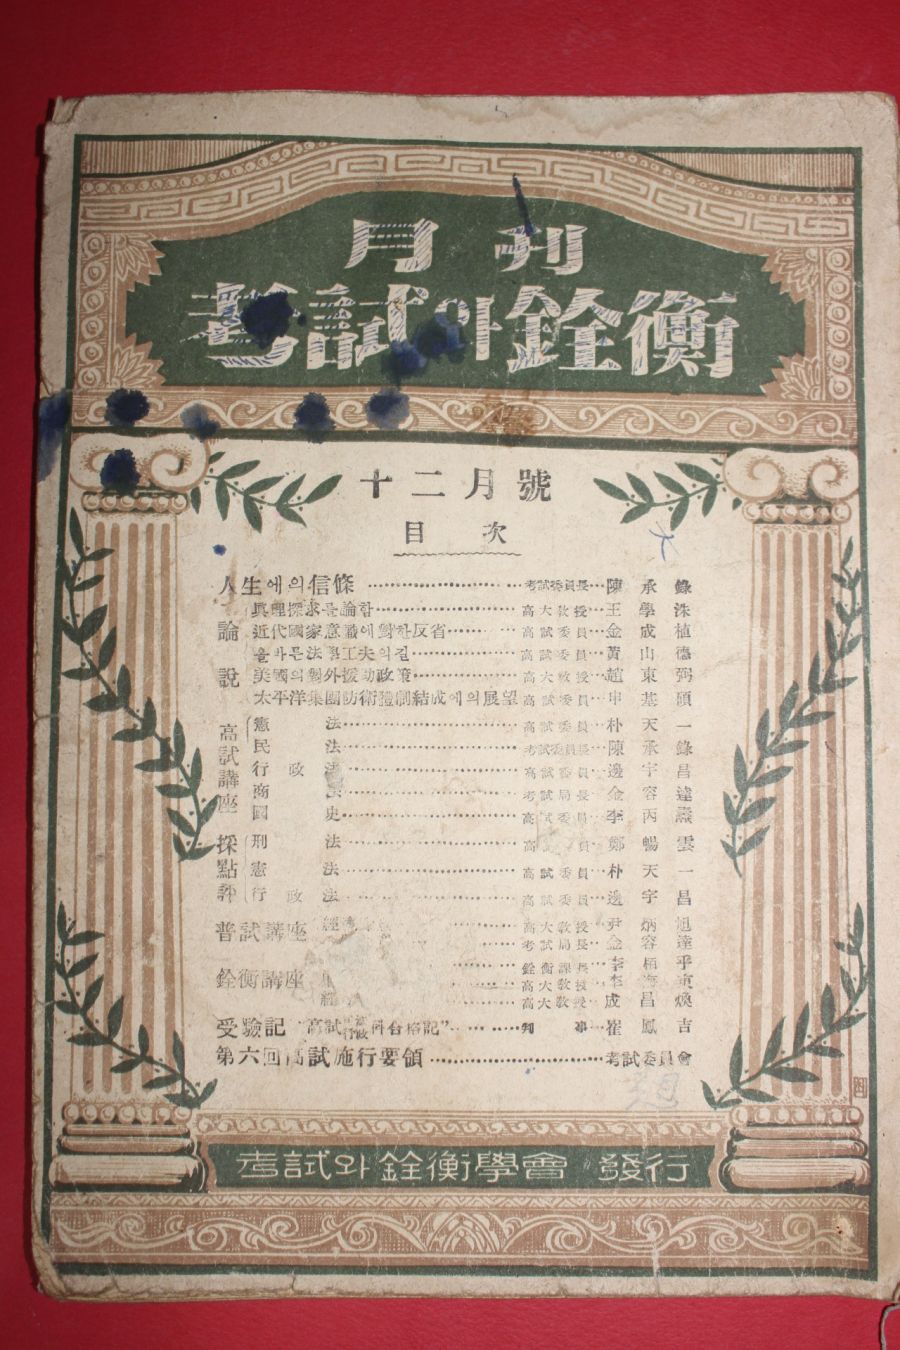 月刊
考試와銓衡
十二月號
目次
人生에의信條 考試委員長 陳承錄
論說
眞理探求를論함 高大敎授 王學洙
近代國家意識에對한反省 高試委員 金成植
올바른法學工夫의길 高試委員 黃山德
美國의對外援助政策 高大敎授 趙東弼
太平洋集團防衛體制結成에의展望 高試委員 申基碩
高試講座
憲法 高試委員 朴天一
民法 考試委員長 陳承錄
行政法 高試委員 邊宇昌
商 考試局長 金容達
國史 高試委員 李丙燾
採點評
刑法 高 員 鄭暢雲
憲法 高試委員 朴天一
行政法 高試委員 邊宇昌
普試講座
經 高大敎授 尹炳旭
考試局長 金容達
銓衡講座
銓衡課長 李
高大敎授 李
經 高大敎授 成昌煥
受驗記 高試 科合格記 判事 崔鳳吉
第六回高試施行要領 考試委員會
考試와銓衡學會 發行